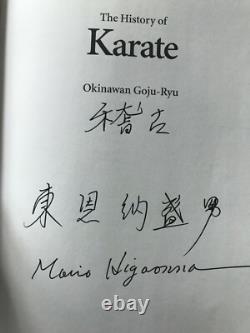 The History of
Karate
Okinawan Goju-Ryu
稽古
東恩納盛男
Morio Higaonna
162.com